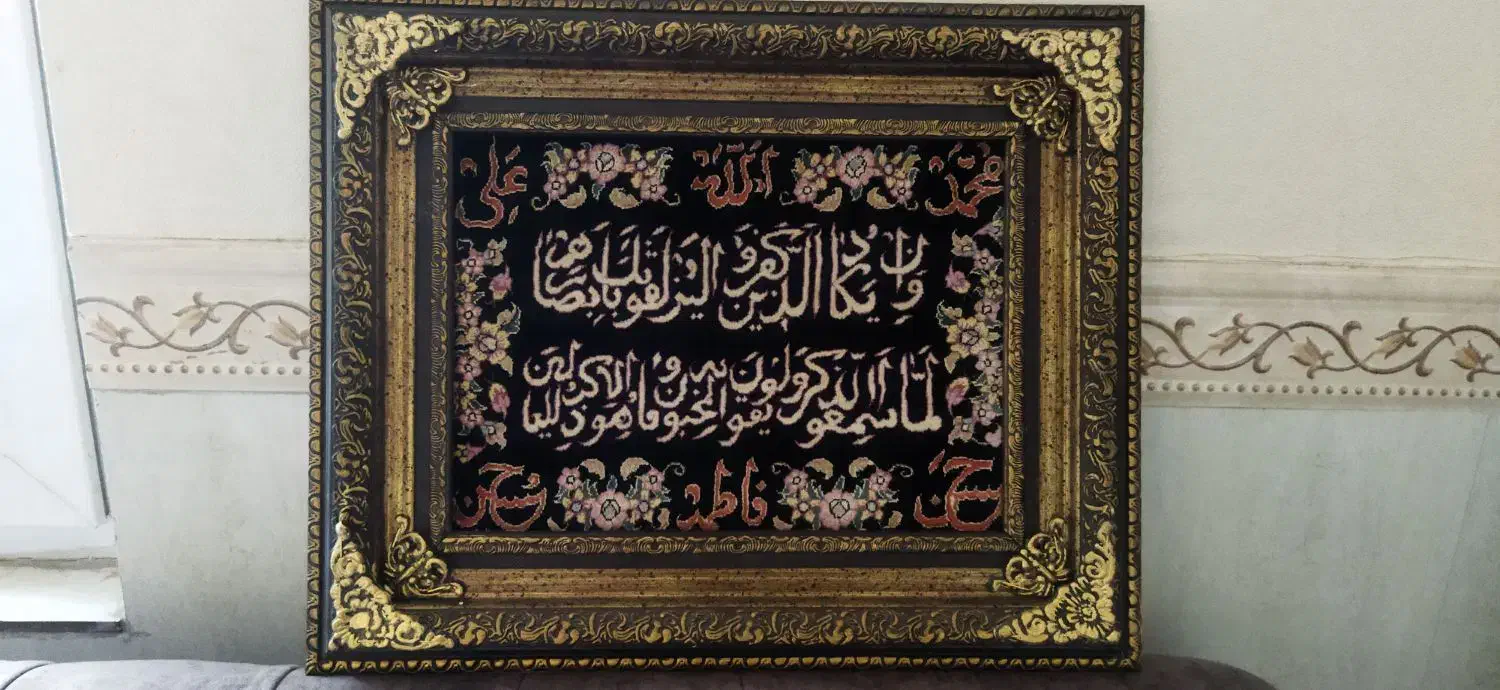 محمّد الله علي
وَاِن يَكادُ الَّذينَ كَفَرو الَيُزلِقونَكَ بِاَبصارِهِم
لَمّا سَمِعو االذِكرَ وَ يَقولونَ اِنَّهُ لَمجنون وَما هُوَ اِلا ذِكر لِلعالَمين
حسن فاطمه حسین